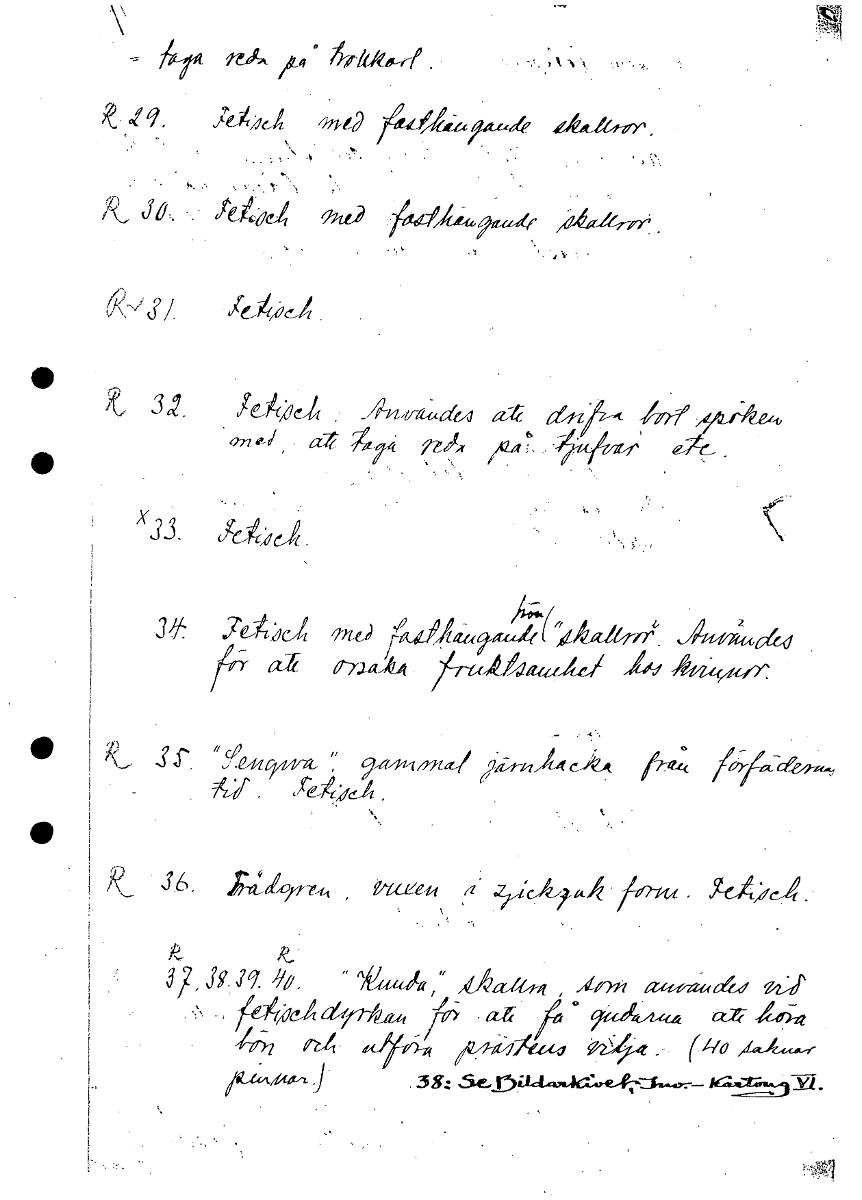 = taga reda på trollkarl.
R 29. Fetisch med fasthängande skallror.
R 30. Fetisch med fasthängande skallror.
R ✓ 31. Fetisch.
R 32. Fetisch. Användes att drifva bort spöken
med, att taga reda på tjufvar etc.
x 33. Fetisch.
34. Fetisch med fasthängande "skallror". Användes
för att orsaka fruktsamhet hos kvinnor.
R 35. "Sengwa", gammal järnhacka från förfädernas
tid. Fetisch.
R 36. Trädgren, vuxen i zickzack form. Fetisch.
R R
37, 38. 39. 40. "Kunda", skallra, som användes vid
fetischdyrkan för att få gudarna att höra
bön och utföra prästens vilja. (40 saknar
pinnar.) 38: Se Bildarkivet, Inv.- Kartong VI.